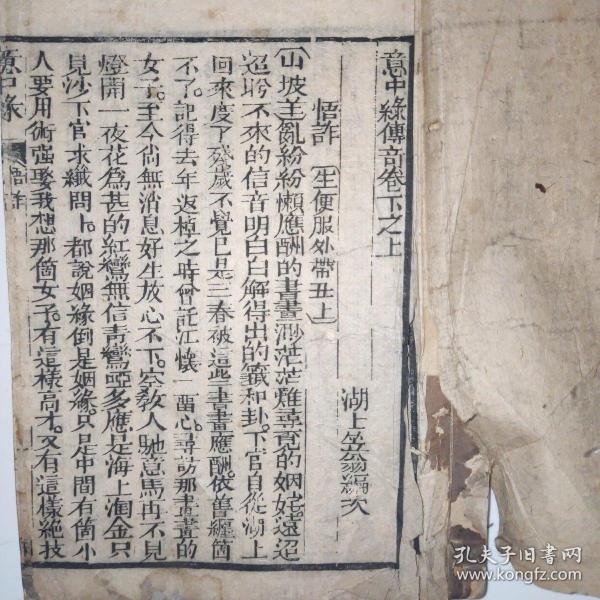 意中緣傳奇卷下之上
湖上笠翁編次
悟詐 〔生便服外帶丑上〕
〔山坡羊〕亂紛紛懶應酬的書畫渺茫茫難尋覓的姻婭遠迢
迢盼不來的信音明白白解得出的籤和卦下官自從湖上
回來度了殘歲不覺已是三春被這些書畫應酬依舊纏箇
不了記得去年返棹之時曾託江懷一留心尋訪那畫畫的
女子至今尚無消息好生放心不下空教人馳意馬再不見
燈開一夜花爲甚的紅鸞無信青鸞啞多應是海上淘金只
見沙下官求纖問卜都說姻緣倒是姻緣只是中間有箇小
人要用術強娶我想那箇女子有這樣高才又有這樣絶技
意中緣
悟詐
孔夫子旧书网
www.kongfz.com